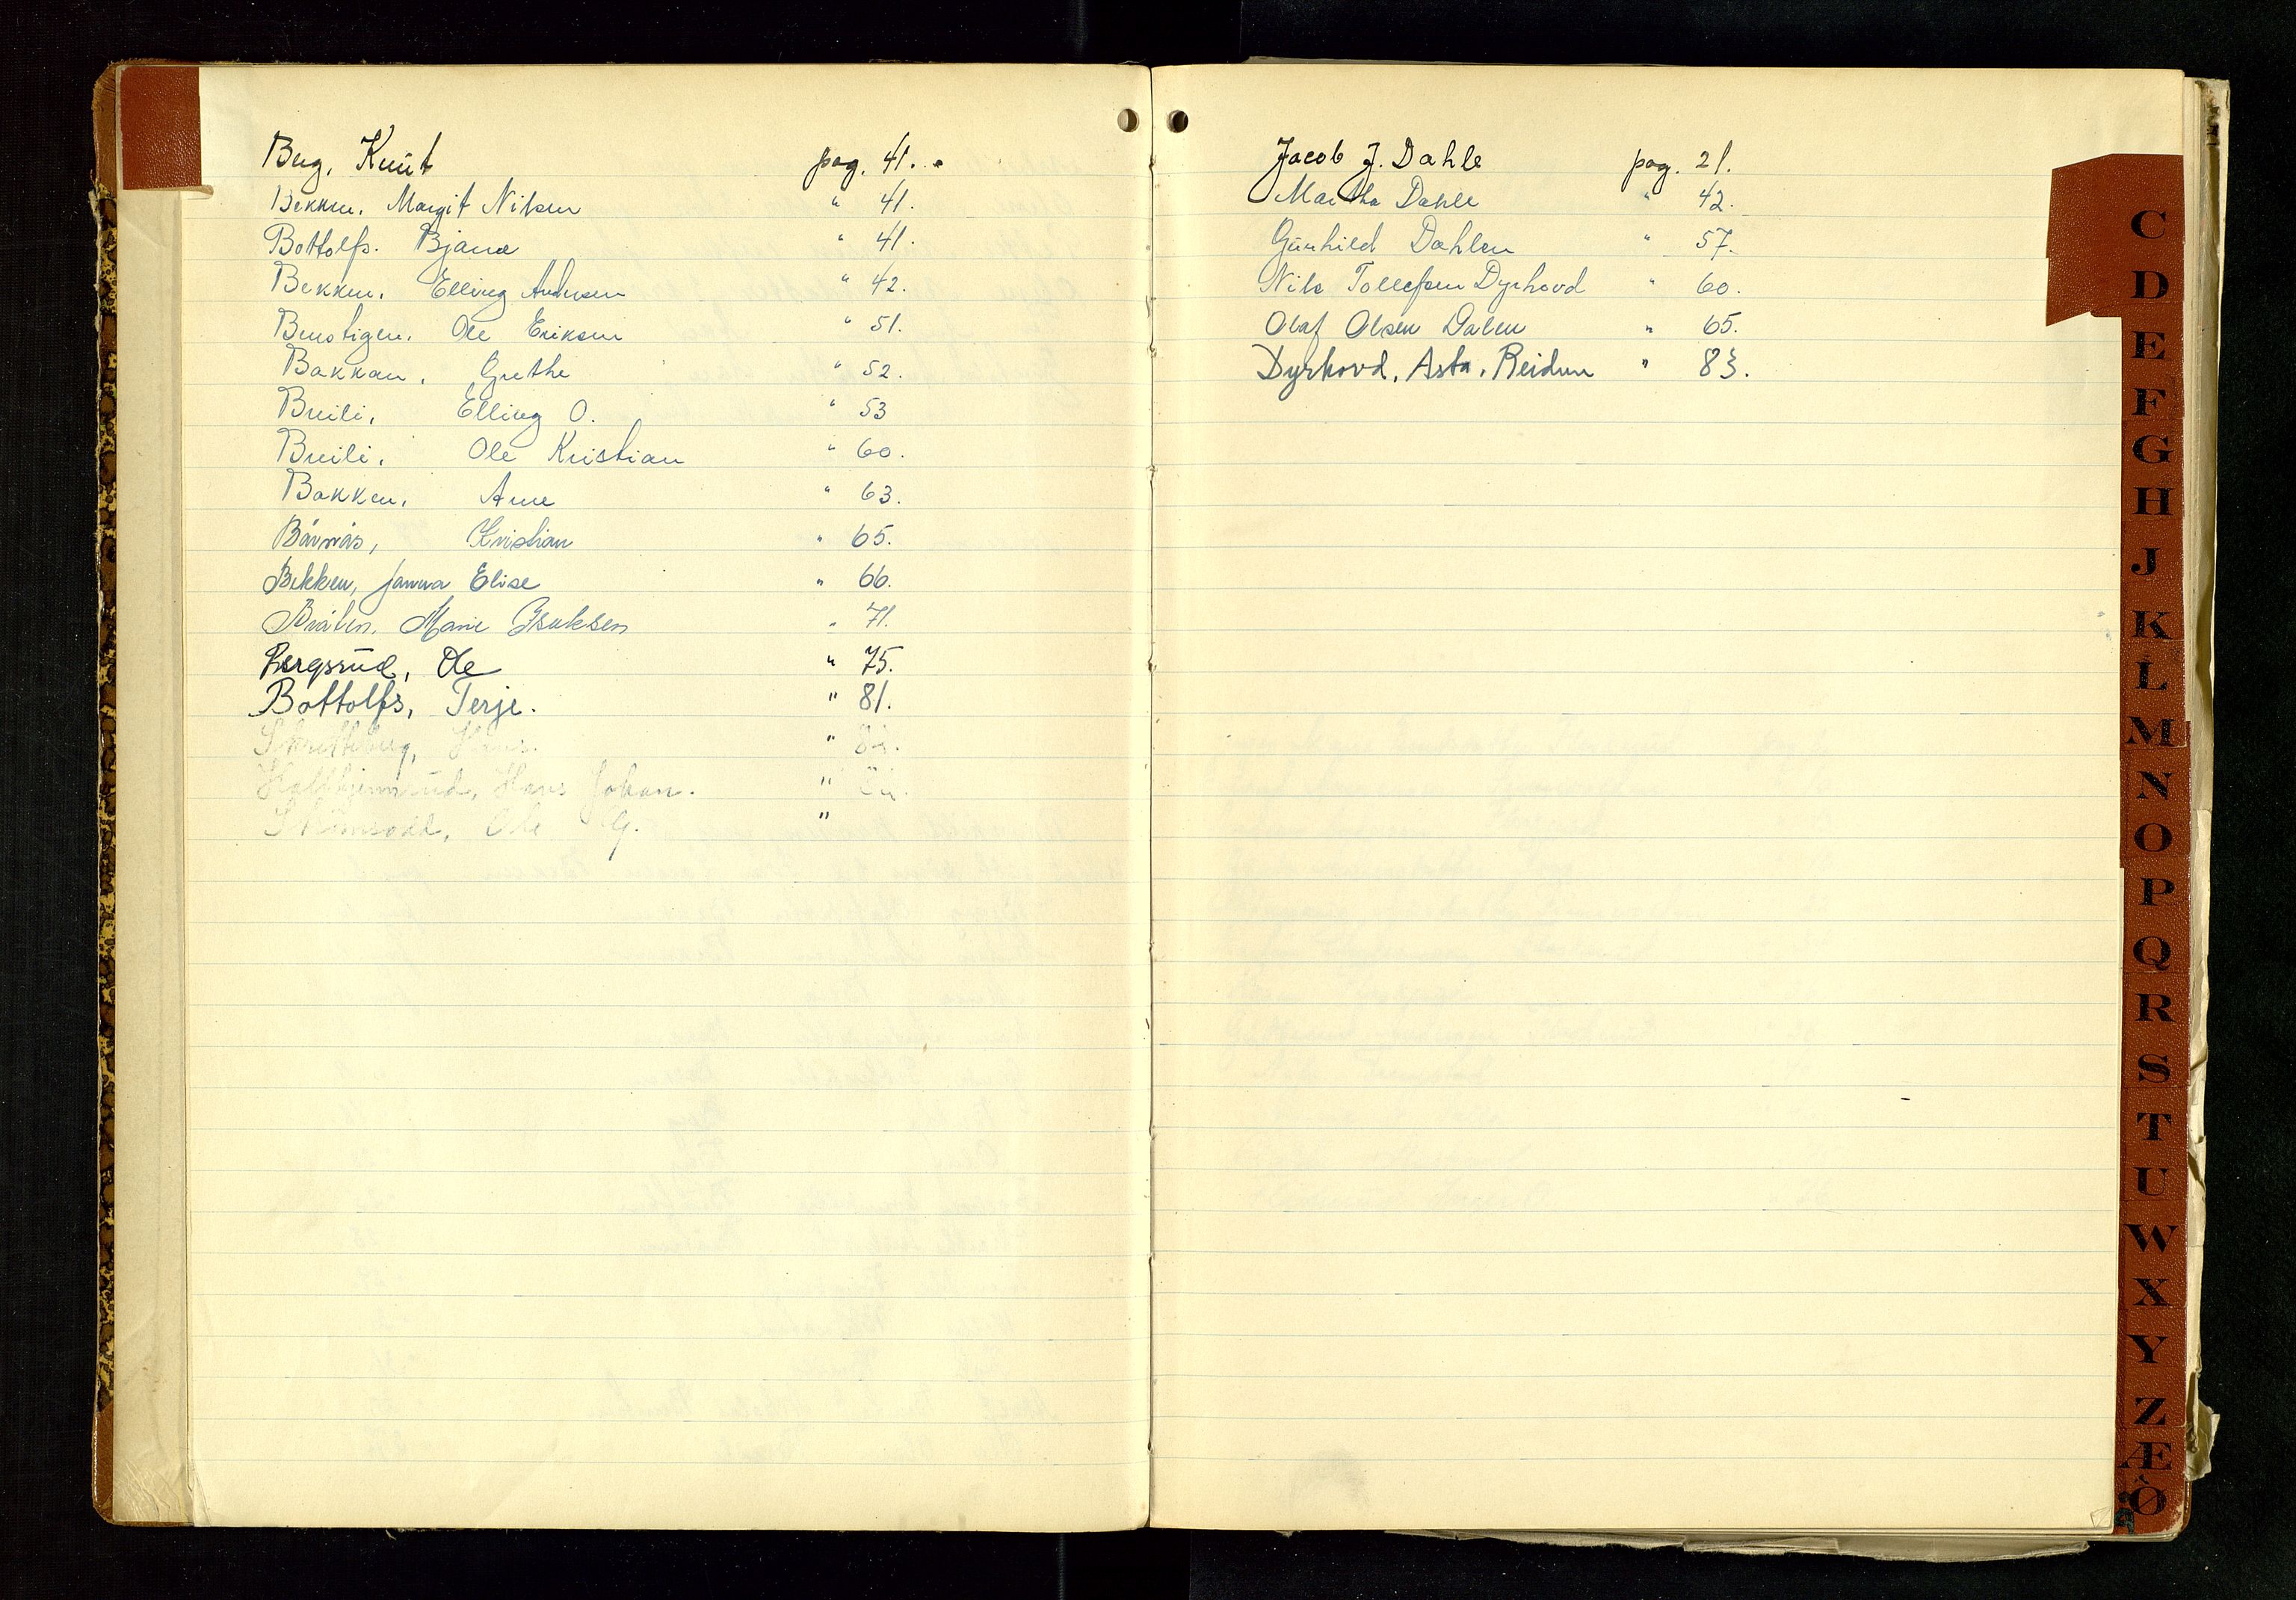 Berg, Knut pag. 41.
Bekken, Margit Nilsen " 41.
Bottolfs. Bjarne " 41.
Bekken, Elling Andersen " 42.
Benstigen, Ole Eriksen " 51.
Bakkan, Grethe " 52.
Breili, Elling O. " 53
Breili, Ole Kristian " 60.
Bakken, Arne " 63.
Bårnås, Kristian " 65.
Bekken, Janna Elise " 66.
Bråten, Marie Isaksen " 71.
Bergsrud, Ole " 75.
Bottolfs, Terje. " 81.
Skretteberg, Hans. "
Kaldkjernrud, Hans Johan. "
Ole G. "
Jacob J. Dahle pag. 21.
Martha Dahle " 42.
Gunhild Dahlen " 57.
Nils Tollefsen Dyrhovd " 60.
Olaf Olsen Dalen " 65.
Dyrhovd, Asta, Reidun " 83.
C
D
E
F
G
H
J
K
L
M
N
O
P
Q
R
S
T
U
W
X
Y
Z
Æ
Ø